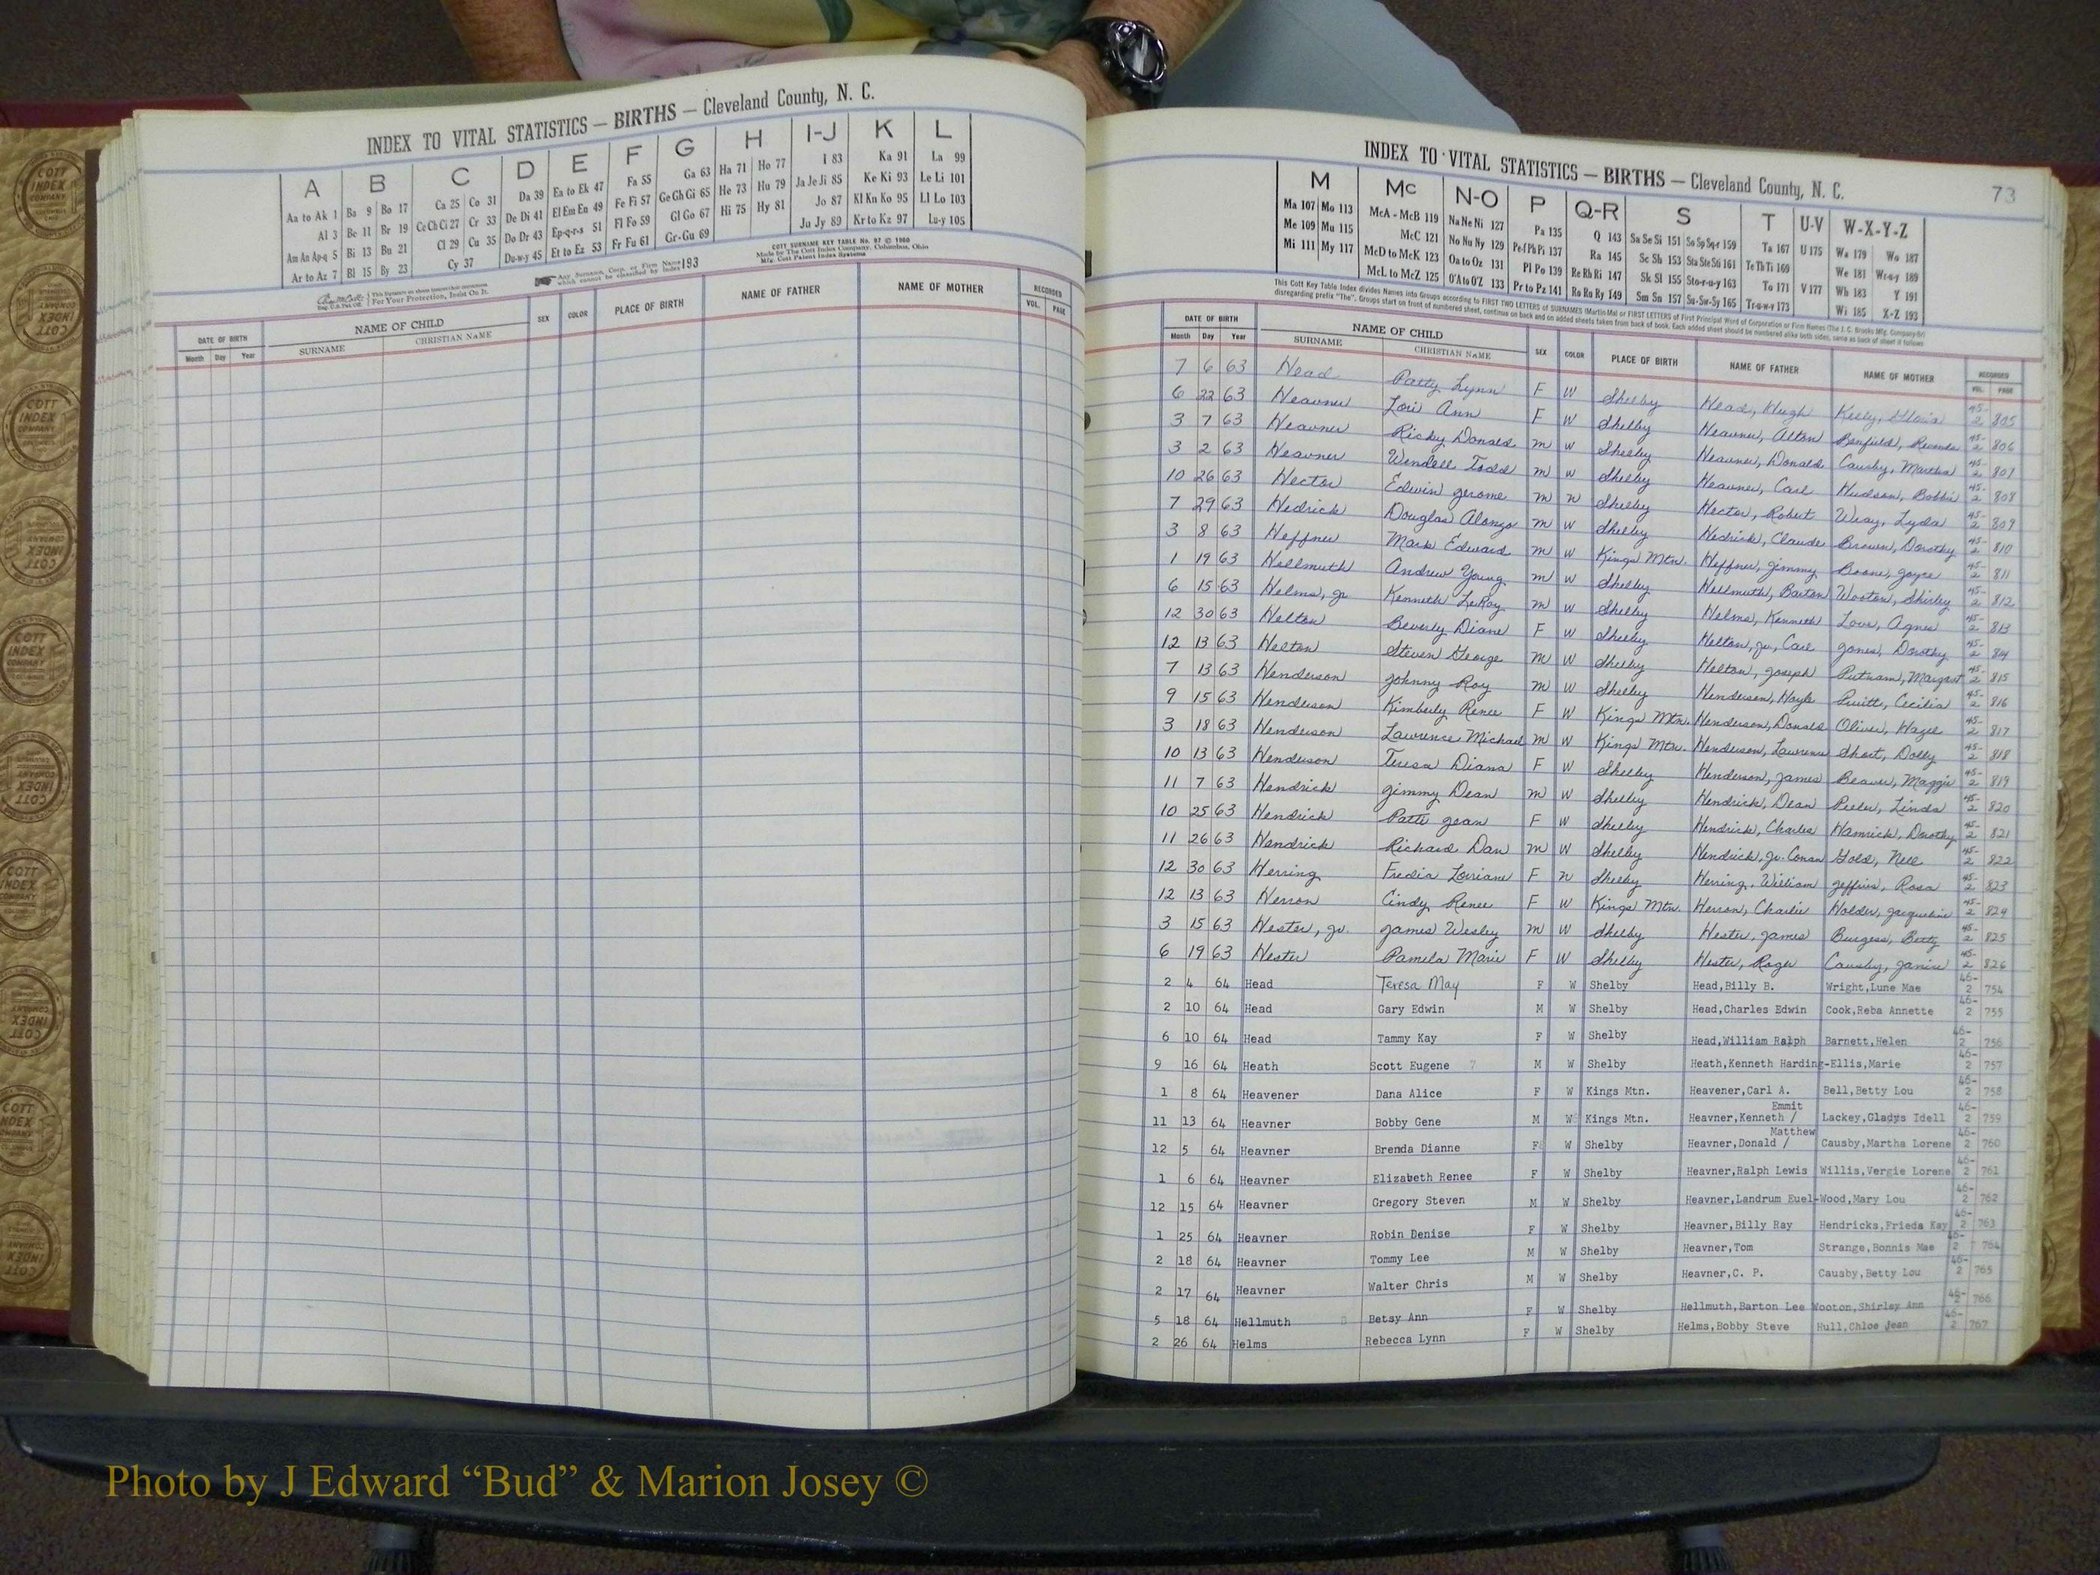 INDEX TO VITAL STATISTICS — BIRTHS — Cleveland County, N. C.
A B C D E F G H I-J K L
Aa to Ak 1 Ba 9 Bo 17 Ca 25 Co 31 Da 39 Ea to Ek 47 Fa 55 Ga 63 Ha 71 Ho 77 I 83 Ka 91 La 99
Al 3 Be 11 Br 19 Ce Ch Ci 27 Cr 33 De Di 41 El Em En 49 Fe Fi 57 Ge Gh Gi 65 He 73 Hu 79 Ja Je Ji 85 Ke Ki 93 Le Li 101
Am An Ap-q 5 Bi 13 Bu 21 Cl 29 Cu 35 Do Dr 43 Ep-q-r-s 51 Fl Fo 59 Gl Go 67 Hi 75 Hy 81 Jo 87 Kl Kn Ko 95 Ll Lo 103
Ar to Az 7 Bl 15 By 23 Cy 37 Du-w-y 45 Et to Ez 53 Fr Fu 61 Gr-Gu 69 Ju Jy 89 Kr to Kz 97 Lu-y 105
COTT SURNAME KEY TABLE No. 97 © 1960
Made by The Cott Index Company, Columbus, Ohio
Mfg. Cott Patent Index Systems
Any Surname, Corp. or Firm Name which cannot be classified by Index 193
For Your Protection, Insist On It.
DATE OF BIRTH NAME OF CHILD SEX COLOR PLACE OF BIRTH NAME OF FATHER NAME OF MOTHER RECORDED
Month Day Year SURNAME CHRISTIAN NAME VOL. PAGE
INDEX TO VITAL STATISTICS — BIRTHS — Cleveland County, N. C. 73
M Mc N-O P Q-R S T U-V W-X-Y-Z
Ma 107 Mo 113 McA - McB 119 Na Ne Ni 127 Pa 135 Q 143 Sa Se Si 151 So Sp Sq-r 159 Ta 167 U 175 Wa 179 Wo 187
Me 109 Mu 115 McC 121 No Nu Ny 129 Pe-f Ph Pi 137 Ra 145 Sc Sh 153 Sta Ste Sti 161 Te Th Ti 169 We 181 Wr-u-y 189
Mi 111 My 117 McD to McK 123 Oa to Oz 131 Pl Po 139 Re Rh Ri 147 Sk Sl 155 Sto-r-u-y 163 To 171 V 177 Wh 183 Y 191
McL to McZ 125 O'A to O'Z 133 Pr to Pz 141 Ro Ru Ry 149 Sm Sn 157 Su-Sw-Sy 165 Tr-u-w-y 173 Wi 185 X-Z 193
This Cott Key Table Index divides Names into Groups according to FIRST TWO LETTERS of SURNAMES (Martin-Ma) or FIRST LETTERS of First Principal Word of Corporation or Firm Names (The J. C. Brooks Mfg. Company-Br)
disregarding prefix "The". Groups start on front of numbered sheet, continue on back and on added sheets taken from back of book. Each added sheet should be numbered alike both sides, same as back of sheet it follows
DATE OF BIRTH NAME OF CHILD SEX COLOR PLACE OF BIRTH NAME OF FATHER NAME OF MOTHER RECORDED
Month Day Year SURNAME CHRISTIAN NAME VOL. PAGE
7 6 63 Head Patty Lynn F W Shelby Head, Hugh Kelly, Gloria 45-2 805
6 22 63 Heavner Lori Ann F W Shelby Heavner, Alton Benfield, 45-2 806
3 7 63 Heavner Ricky Donald M W Shelby Heavner, Donald Causby, Martha 45-2 807
3 2 63 Heavner Wendell Todd M W Shelby Heavner, Carl Hudson, Bobbie 45-2 808
10 26 63 Hector Edwin Jerome M N Shelby Hector, Robert Wray, Lyda 45-2 809
7 29 63 Hedrick Douglas Alonzo M W Shelby Hedrick, Claude Brown, Dorothy 45-2 810
3 8 63 Heffner Mark Edward M W Kings Mtn. Heffner, Jimmy Boone, Joyce 45-2 811
1 19 63 Hellmuth Andrew Young M W Shelby Hellmuth, Barton Wooton, Shirley 45-2 812
6 15 63 Helms, Jr. Kenneth LeRoy M W Shelby Helms, Kenneth Love, Agnes 45-2 813
12 30 63 Helton Beverly Diane F W Shelby Helton, Jr., Carl Jones, Dorothy 45-2 814
12 13 63 Helton Steven George M W Shelby Helton, Joseph Putnam, Margaret 45-2 815
7 13 63 Henderson Johnny Roy M W Shelby Henderson, Hoyle Pruitt, Cecilia 45-2 816
9 15 63 Henderson Kimberly Renee F W Kings Mtn. Henderson, Donald Oliver, Hazel 45-2 817
3 18 63 Henderson Lawrence Michael M W Kings Mtn. Henderson, Lawrence Short, Dolly 45-2 818
10 13 63 Henderson Teresa Diana F W Shelby Henderson, James Beaver, Maggie 45-2 819
11 7 63 Hendrick Jimmy Dean M W Shelby Hendrick, Dean Peeler, Linda 45-2 820
10 25 63 Hendrick Patti Jean F W Shelby Hendrick, Charles Hamrick, Dorothy 45-2 821
11 26 63 Hendrick Richard Dan M W Shelby Hendrick, Jr. Conan Gold, Nell 45-2 822
12 30 63 Herring Fredia Lorriane F N Shelby Herring, William Jeffries, Rosa 45-2 823
12 13 63 Herron Cindy Renee F W Kings Mtn. Herron, Charlie Holder, Jacqueline 45-2 824
3 15 63 Hester, Jr. James Wesley M W Shelby Hester, James Burgess, Betty 45-2 825
6 19 63 Hester Pamela Marie F W Shelby Hester, Roger Causby, Janice 45-2 826
2 4 64 Head Teresa May F W Shelby Head,Billy B. Wright,Lune Mae 46-2 754
2 10 64 Head Gary Edwin M W Shelby Head,Charles Edwin Cook,Reba Annette 46-2 755
6 10 64 Head Tammy Kay F W Shelby Head,William Ralph Barnett,Helen 46-2 756
9 16 64 Heath Scott Eugene M W Shelby Heath,Kenneth Harding-Ellis,Marie 46-2 757
1 8 64 Heavener Dana Alice F W Kings Mtn. Heavener,Carl A. Bell,Betty Lou 46-2 758
11 13 64 Heavner Bobby Gene M W Kings Mtn. Heavner,Kenneth / Emmit Lackey,Gladys Idell 46-2 759
12 5 64 Heavner Brenda Dianne F W Shelby Heavner,Donald / Matthew Causby,Martha Lorene 46-2 760
1 6 64 Heavner Elizabeth Renee F W Shelby Heavner,Ralph Lewis Willis,Vergie Lorene 46-2 761
12 15 64 Heavner Gregory Steven M W Shelby Heavner,Landrum Euel-Wood,Mary Lou 46-2 762
1 25 64 Heavner Robin Denise F W Shelby Heavner,Billy Ray Hendricks,Frieda Kay 46-2 763
2 18 64 Heavner Tommy Lee M W Shelby Heavner,Tom Strange,Bonnis Mae 46-2 764
2 17 64 Heavner Walter Chris M W Shelby Heavner,C. P. Causby,Betty Lou 46-2 765
5 18 64 Hellmuth Betsy Ann F W Shelby Hellmuth,Barton Lee Wooton,Shirley Ann 46-2 766
2 26 64 Helms Rebecca Lynn F W Shelby Helms,Bobby Steve Hull,Chloe Jean 46-2 767
Photo by J Edward “Bud” & Marion Josey ©